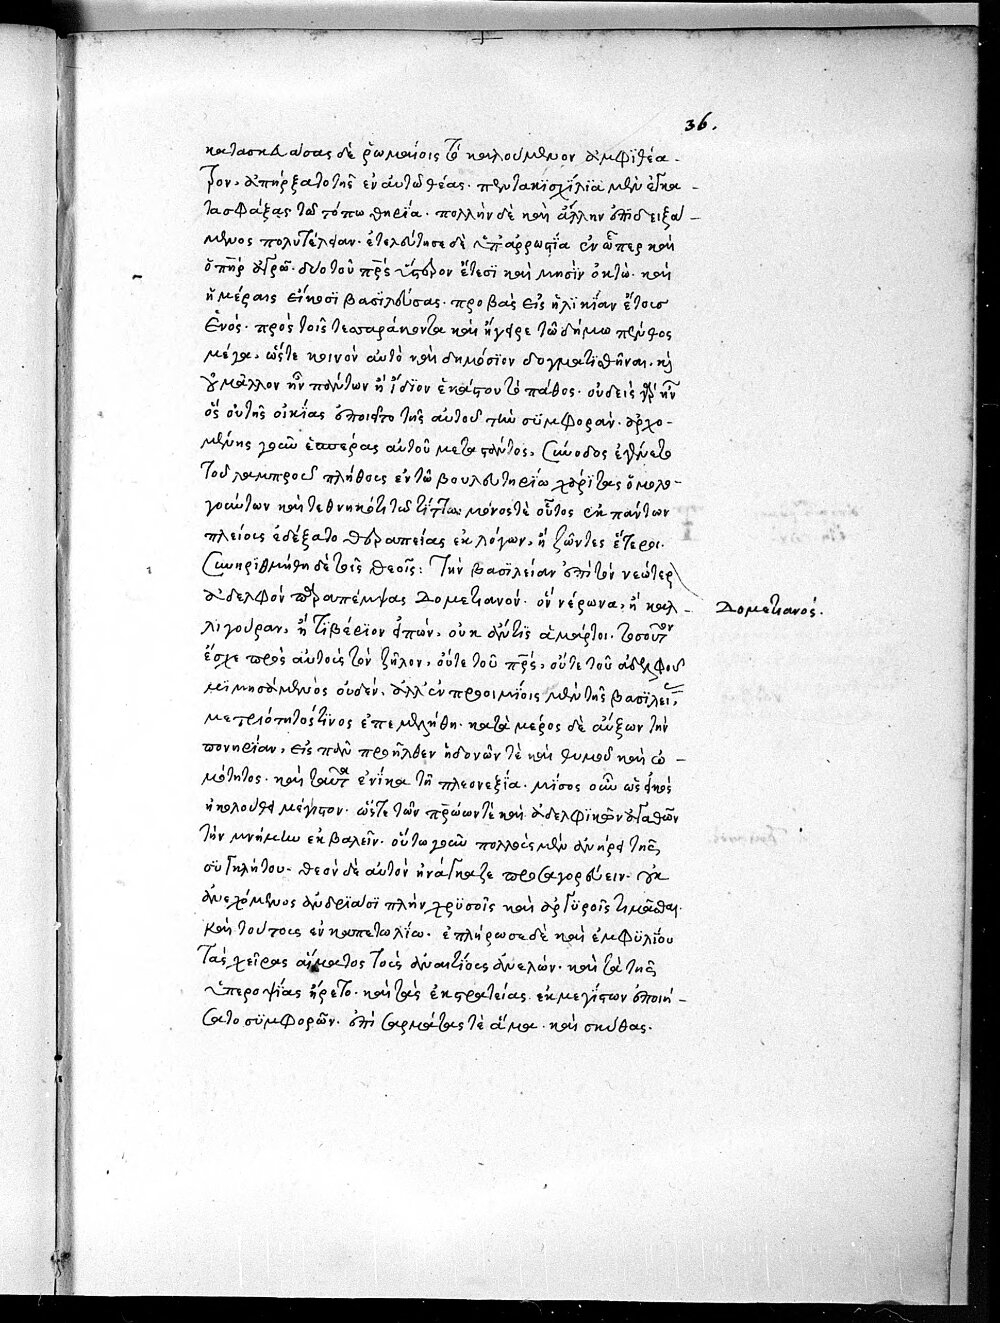 36.
κατασκευάσας δὲ ῥωμαίοις τὸ καλούμενον ἀμφιθέα-
τρον, ἀπήρξατο τῆς ἐν αὐτῷ θέας. πεντακισχίλια μὲν ἐγκα-
τασφάξας τῷ τόπῳ θηρία. πολλὴν δὲ καὶ ἄλλην ἐπιδειξά-
μενος πολυτέλειαν. ἐτελεύτησε δὲ ὑπ' ἀρρωστία ἐν ᾧπερ καὶ
ὁ πὴρ ἀγρῷ. δυο τοῦ πρς ὕστερον ἔτεσι καὶ μησὶν ὀκτώ. καὶ
ἡμέραις εἴκοσι βασιλεύσας. προβὰς εἰς ἡλικίαν ἔτους
ἑνός. πρὸς τοῖς τεσσαράκοντα καὶ ἤγειρε τῷ δήμῳ πένθος
μέγα, ὥστε κοινὸν αὐτὸ καὶ δημόσιον δογματισθῆναι. κ
μᾶλλον ἦν πάντων ἢ ἴδιον ἑκάστου τὸ πάθος. οὐδεὶς γὰρ ἦν
ὃς οὐ τῆς οἰκίας ἐποιεῖτο τῆς αὐτοῦ τὴν συμφοράν. ἀρχο-
μένης γοῦν ἑσπέρας αὐτοῦ μεταστάντος, σύνοδος ἐγίνετο
τοῦ λαμπροῦ πλήθους ἐν τῷ βουλευτηρίῳ χάριτας ὁμολο-
γούντων καὶ τεθνηκότι τῷ τίτῳ. μόνος τὲ οὗτος ἐκ πάντων
πλείους ἐδέξατο θεραπείας ἐκ λόγων, ἢ ζῶντες ἕτεροι.
Συνηριθμήθη δὲ τοῖς θεοῖς: Τὴν βασιλείαν ἐπὶ τὸν νεώτερ
ἀδελφὸν παραπέμψας Δομετιανόν. ὃν νέρωνα, ἢ καλ-
λιγούραν, ἢ τιβέριον εἰπών, οὐκ ἄν τις ἁμάρτοι. τοσοῦτον
ἔσχε πρὸς αὐτοὺς τὸν ζῆλον, οὔτε τοῦ πρς, οὔτε τοῦ ἀδελφοῦ
μιμησάμενος οὐδέν. ἀλλ' ἐν προοιμίοις μὲν τῆς βασιλεί,
μετριότητός τινος ἐπεμελήθη. κατὰ μέρος δὲ αὔξων τὴν
πονηρίαν, εἰς πολὺ προῆλθεν ἡδονῶν τὲ καὶ θυμοῦ καὶ ὠ-
μότητος. καὶ ταῦτα ἐνίκα τῇ πλεονεξίᾳ. μῖσος οὖν ὡς εἰκὸς
ἠκολούθει μέγιστον. ὥστε τῶν πρώων τὲ καὶ ἀδελφικῶν ἀγαθῶν
τὴν μνήμην ἐκβαλεῖν. οὕτω γοῦν πολλοὺς μὲν ἀνῄρει τῆς
συγκλήτου. θεὸν δὲ αὐτὸν ἠνάγκαζε προσαγορεύειν.
ἀνεχόμενος ἀνδριάσι πλὴν χρυσοῖς καὶ ἀργυροῖς τιμᾶσθαι.
καὶ τούτοις ἐν καπετωλίῳ. ἐπλήρωσε δὲ καὶ ἐμφυλίου
τὰς χεῖρας αἵματος τοὺς ἀναιτίους ἀνελών. καὶ τὰ τῆς
ὑπεροψίας ᾔρετο. καὶ τὰς ἐκστρατείας. ἐκ μεγίστων ἐποιή-
σατο συμφορῶν. ἐπὶ σαρμάτας τὲ ἅμα. καὶ σκύθας.
Δομετιανός.